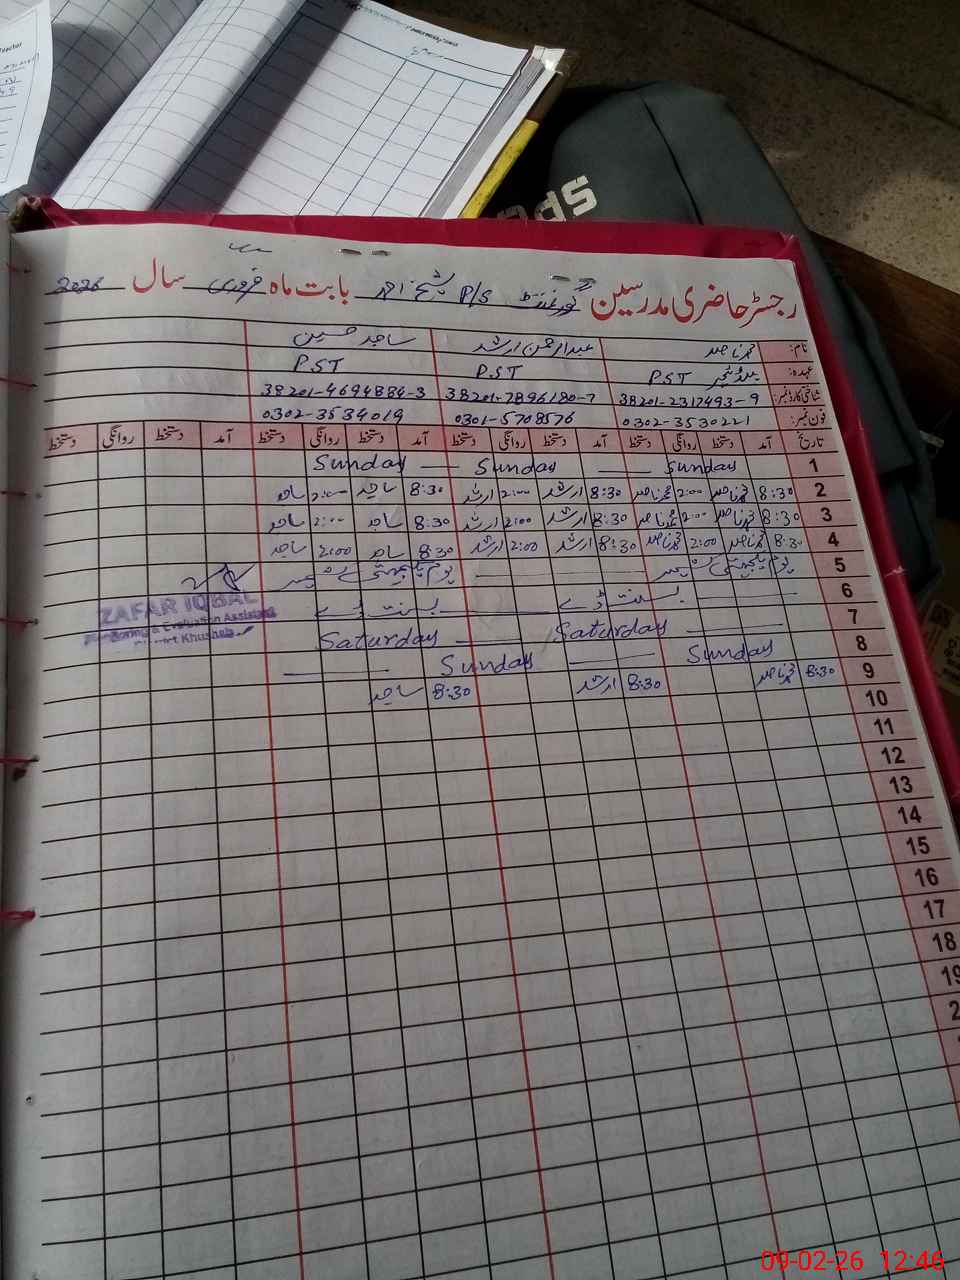 رجسٹر حاضری مدرسین گورنمنٹ P/S شیخ احمد بابت ماہ فروری سال 2026
نام: محمد ناصر عبدالرحمن ارشد ساجد حسین
عہدہ: PST PST PST
شناختی کارڈ نمبر: 38201-2317493-9 38201-7896180-7 38201-4694884-3
فون نمبر: 0302-3530221 0301-5708576 0302-3534019
تاریخ آمد دستخط روانگی دستخط آمد دستخط روانگی دستخط آمد دستخط روانگی دستخط آمد دستخط روانگی دستخط
1 Sunday Sunday Sunday
2 8:30 محمد ناصر 2:00 محمد ناصر 8:30 ارشد 2:00 ارشد 8:30 ساجد 2:00 ساجد
3 8:30 محمد ناصر 2:00 محمد ناصر 8:30 ارشد 2:00 ارشد 8:30 ساجد 2:00 ساجد
4 8:30 محمد ناصر 2:00 محمد ناصر 8:30 ارشد 2:00 ارشد 8:30 ساجد 2:00 ساجد
5 یوم یکجہتی کشمیر یوم یکجہتی کشمیر
6 بسنت ڈے بسنت ڈے
7 Saturday Saturday
8 Sunday Sunday
9 8:30 محمد ناصر 8:30 ارشد 8:30 ساجد
10
11
12
13
14
15
16
17
18
19
ZAFAR IQBAL
Monitoring & Evaluation Assistant
District Khushab
09-02-26 12:46